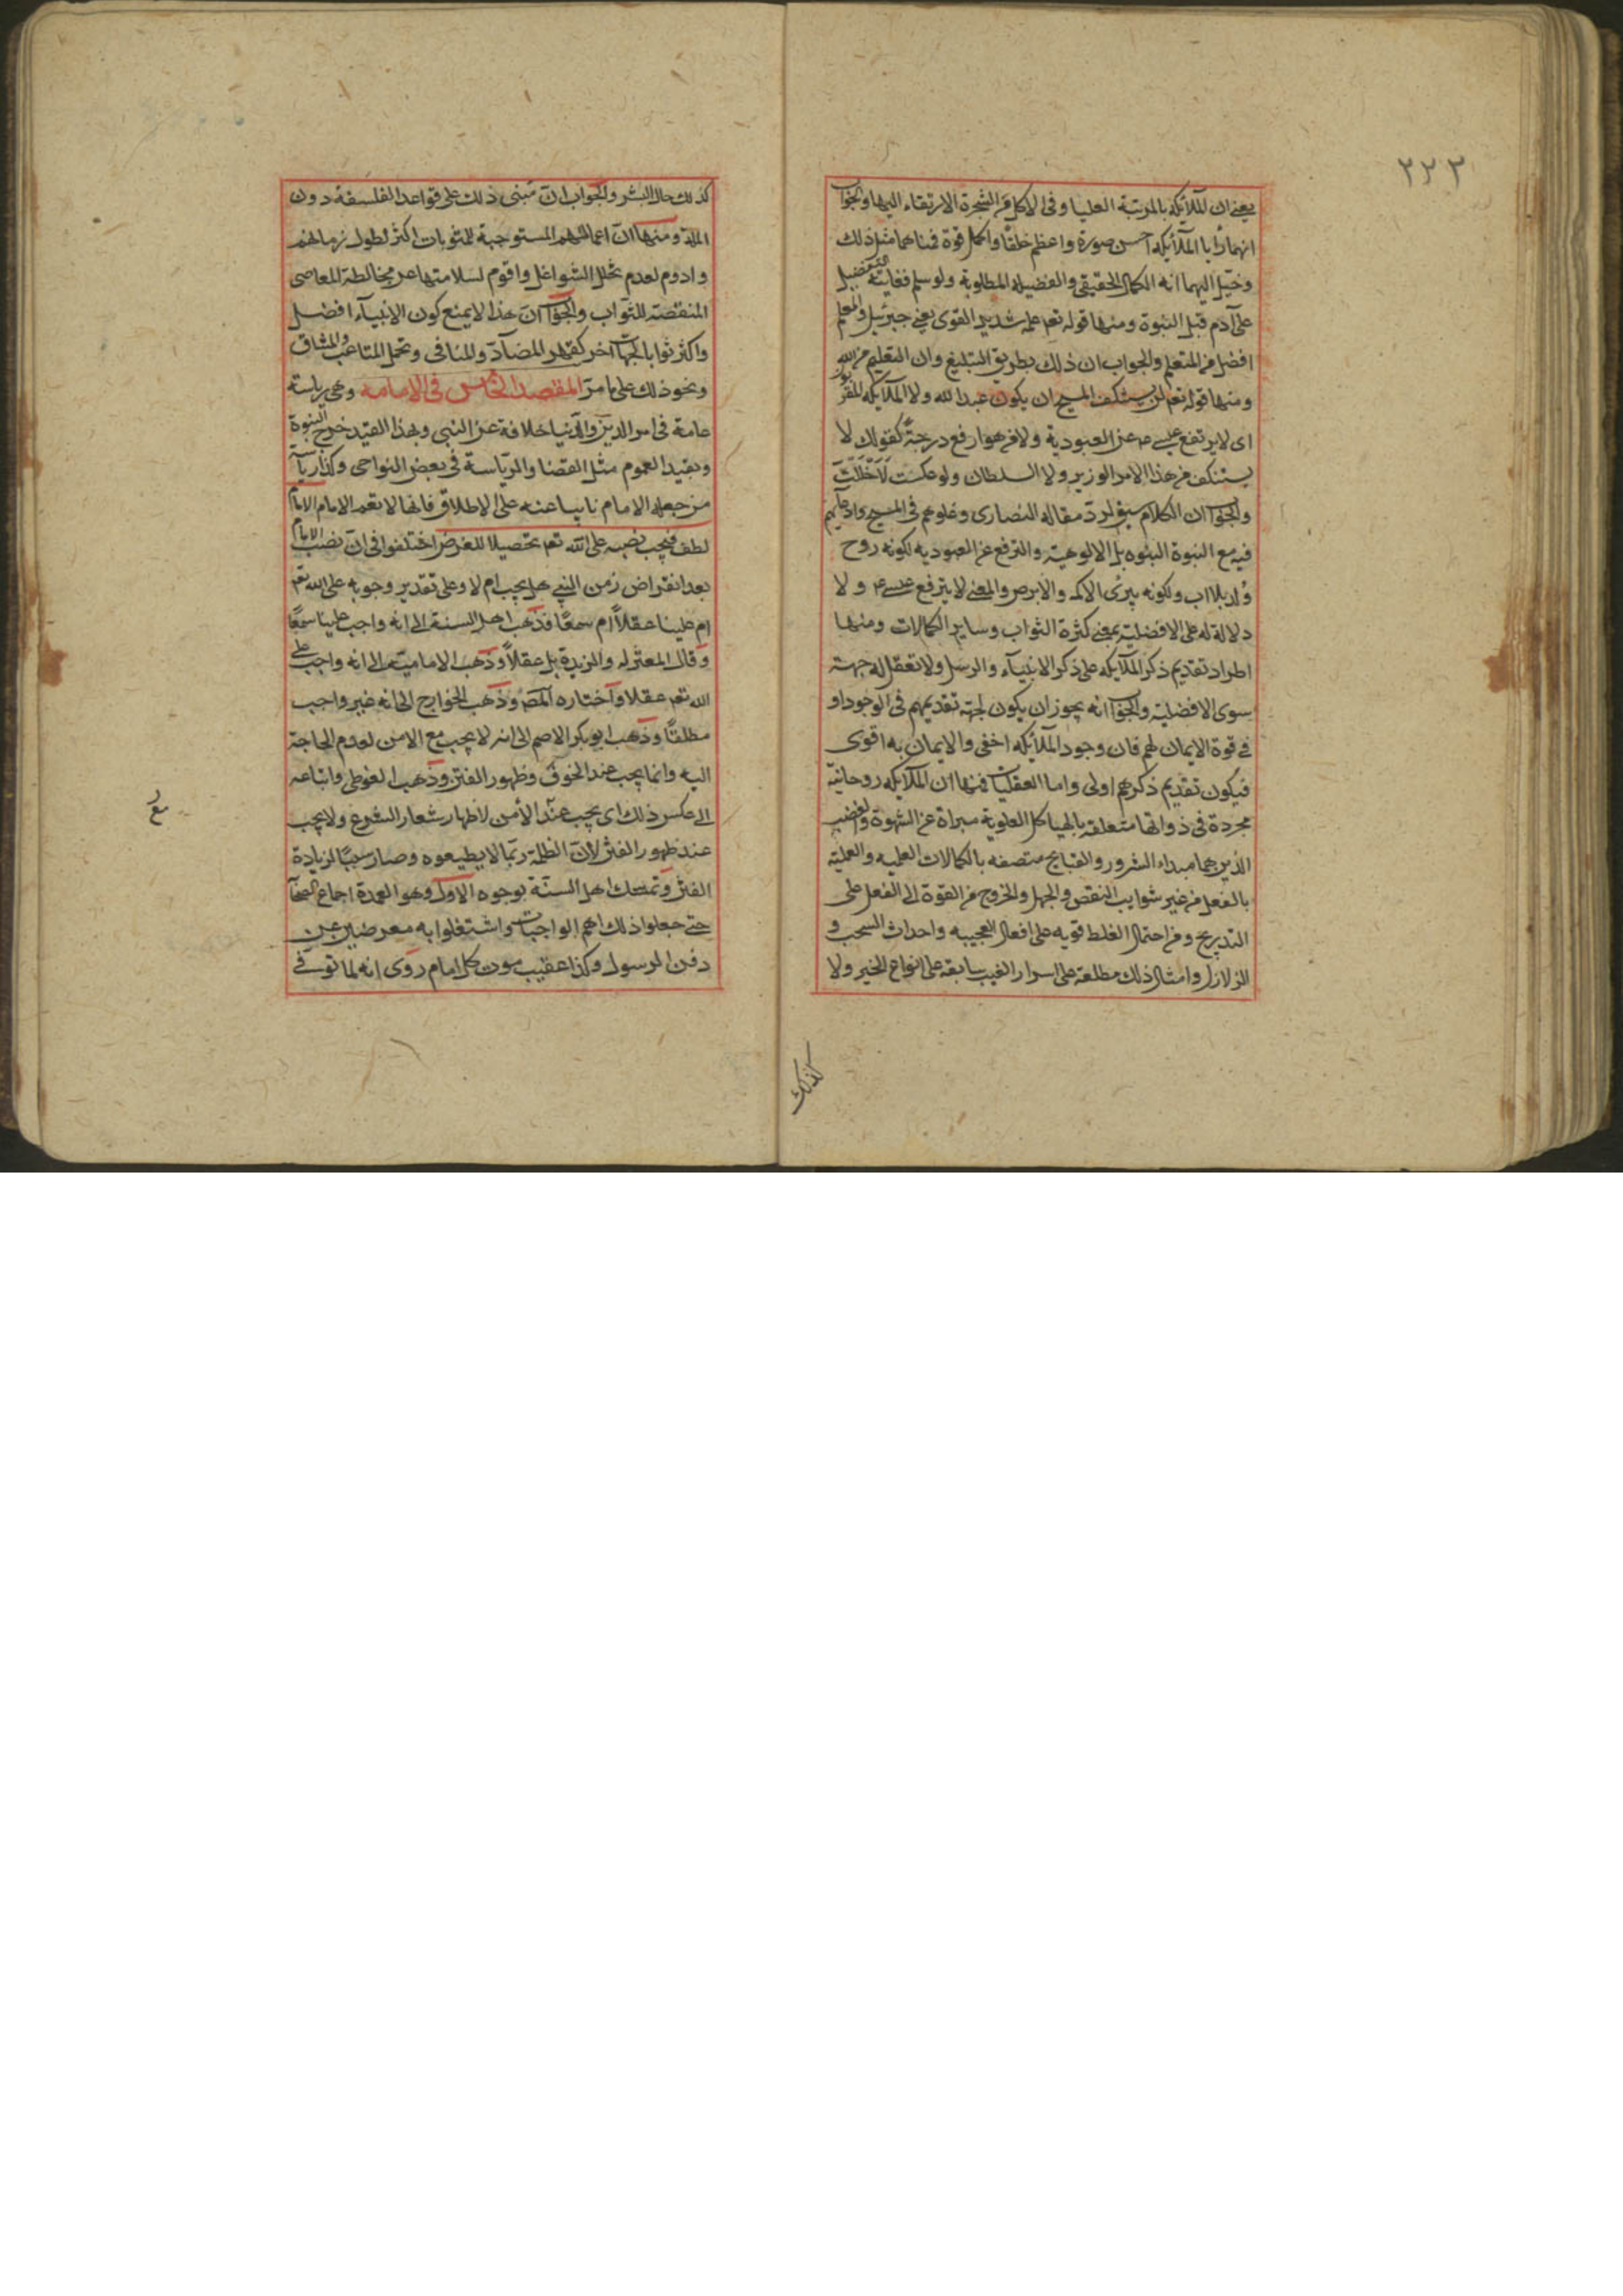 ٢٢٣
يعنى ان الملائكة بالمرتبة العليا وفى الاكل من الشجرة الارتقاء اليها والجواب
انهما رأيا الملائكه احسن صورة واعظم خلقًا واكمل قوة فمناهما مثل ذلك
وخيّل اليهما انه الكمال الحقيقى والفضيله المطلوبة ولو سلم فغايته التفضيل
على آدم قبل النبوة ومنها قوله تعم علمه شديد القوى يعنى جبرئيل والمعلم
افضل من المتعلم والجواب ان ذلك بطريق التبليغ وان التعليم من الله
ومنها قوله تعم لن يستنكف المسيح ان يكون عبدا لله ولا الملايكه المقربون
اى لا يرتفع عيسى عن العبودية ولا من هو ارفع درجةً كقولك لا
يستنكف من هذا الامر الوزير ولا السلطان ولو عكست لاخللت
والجوآ ان الكلام سيق لرد مقاله النصارى وغلوهم فى المسيح وادعائهم
فيه مع النبوة البنوه بل الالوهية والترفع عن العبوديه لكونه روح
وُلد بلا اب ولكونه يبرئ الاكمه والابرص والمعنى لا يترفع عيسى ء و لا
دلالة له على الافضلية بمعنى كثرة الثواب وساير الكمالات ومنها
اطراد تقديم ذكر الملايكه على ذكر الانبيآء والرسل ولا تعقل له جهة
سوى الافضلية والجوآ انه يجوز ان يكون لجهة تقديمهم فى الوجود او
فى قوة الايمان لهم فان وجود الملائكه اخفى والايمان به اقوى
فيكون تقديم ذكرهم اولى واما العقليات فمنها ان الملايكه روحانية
مجردة فى ذواتها متعلقه بالهياكل العلوية مبراة عن الشهوة والغضب
الذين هما مبداء الشرور والقبايح متصفه بالكمالات العلميه والعملية
بالفعل من غير شوايب النقص والجهل والخروج من القوة الى الفعل على
التدريج ومن احتمال الغلط قويه على افعال العجيبه واحداث السحب و
الزلازل وامثال ذلك مطلعة على اسرار الغيب سابقة على انواع الخير ولا
كذلك
كذلك حال البشر والجواب ان مبنى ذلك على قواعد الفلسفة دون
الملة ومنها ان اعمالهم المستوجبة للمثوبات اكثر لطول زمانهم
وادوم لعدم تخلل الشواغل واقوم لسلامتها عن مخالطة المعاصى
المنقصة للثواب والجوآ ان هذا لا يمنع كون الانبيآء افضل
واكثر ثوابا لجهات آخر كقهر المضآد والمنافى وتحمل المتاعب والمشاق
ونحو ذلك على ما مرّ المقصد الخامس فى الامامه وهى رياسة
عامة فى امر الدين والدنيا خلافة عن النبى وبهذا القيد خرج النبوة
وبقيد العموم مثل القضا والرّياسة فى بعض النواحى وكذا رياسة
من جعله الامام نايبا عنه على الاطلاق فانها لا تعم الامام الامام
لطف فيجب نصبه على الله تعم تحصيلا للغرض اختلفوا فى ان نصب الامام
بعد انقراض زمن النبى هل يجب ام لا وعلى تقدير وجوبه على الله تعم
ام علينا عقلاً ام سمعًا فذهب اهل السنة الى انه واجب علينا سمعًا
وقال المعتزله والزيدية بل عقلاً وذهب الاماميّة الى انه واجب على
الله تعم عقلا وآختاره المصَ وذهب الخوارج الى انه غير واجب
مطلقًا وذهب ابو بكر الاصم الى انه لا يجب مع الامن لعدم الحاجة
اليه وانما يجب عند الخوف وظهور الفتن وذهب الفوطى واتباعه
الى عكس ذلك اى يجب عند الأمن لاظهار شعار الشرع ولا يجب
عند ظهور الفتن لان الظلمة ربّما لا يطيعوه وصار سببًا لزيادة
الفتن وتمسك اهل السنّة بوجوه الاول وهو العمدة اجماع الصحآ
حتى جعلوا ذلك اهم الواجبات واشتغلوا به معرضين عن
دفن الرسول وكذا عقيب موت كل امام رَوى انه لما توفى